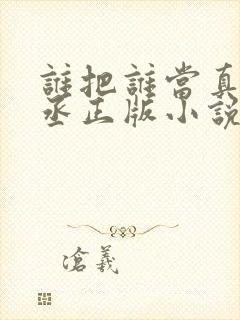 誰把誰當真
丞正版小說
滄義